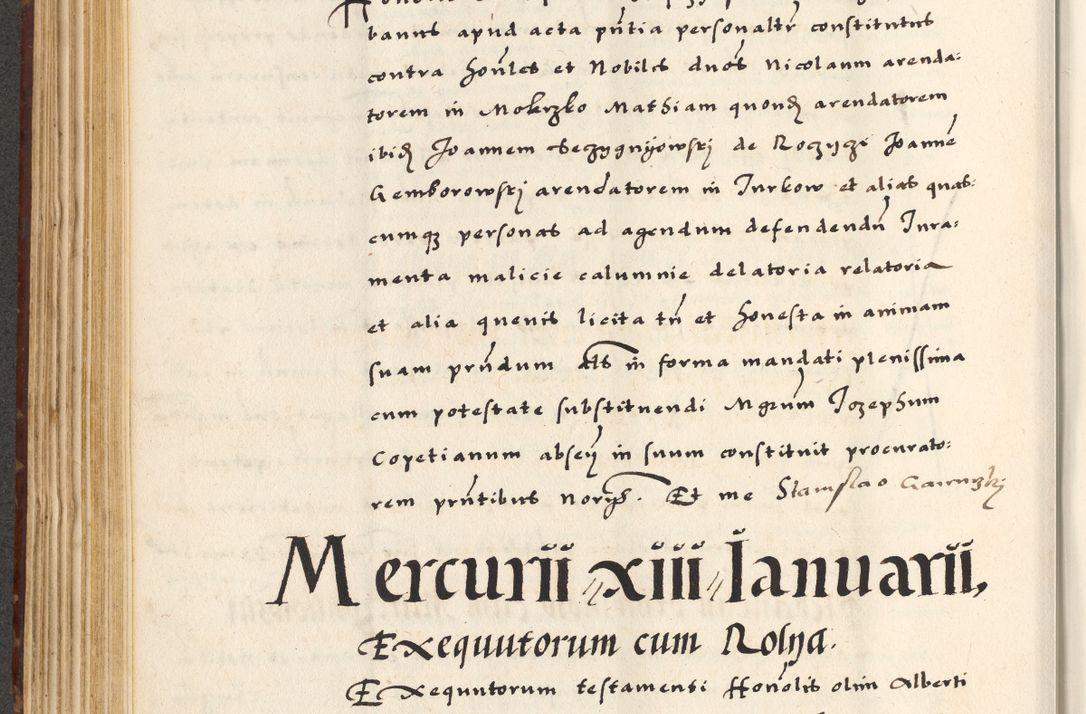 banus apud acta pñtia personaltr̃ constitutus
contra Hoñles et Nobiles duos Nicolaum arenda:
torem in Mokrzko Mathiam quondã arendatorem
ibid Joannem Seczygnijowskj de Roczyczi Joannẽ
Gemborowskj arendatorem in Turkow et alias quas:
cumqz personas ad agendum defendendũ Jura:
menta malicie calumnie delatoria relatoria
et alia quevis licita tñ et honesta in animam
suam prñdum als in forma mandati plenissima
cum potestate substituendi Mgrum Jozephum
Copetianum absen in suum constituit procurato:
rem prñtibus Norys. Et me Stanislao
Mercurii xiii Januarii,
Exequutorum cum Rolya.
Exequutorum testamenti Honolis olim Alberti